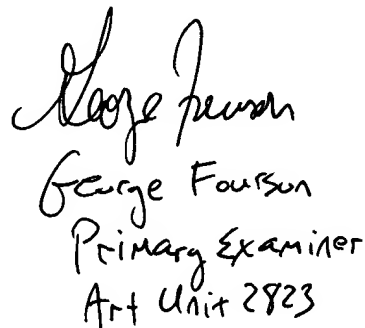 George Fourson
George Fourson
Primary Examiner
Art Unit 2823